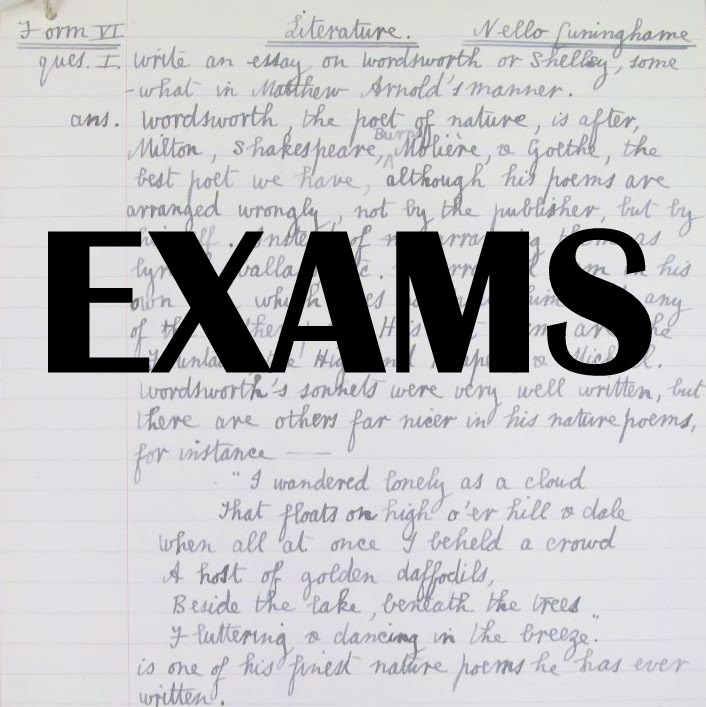 Form VI Literature. Nello Cuninghame
ques. I. write an essay on wordsworth or Shelley, some
-what in Matthew Arnold's manner.
ans. Wordsworth, the poet of nature, is after,
Burns
Milton, Shakespeare, Molière, & Goethe, the
best poet we have, although his poems are
arranged wrongly, not by the publisher, but by
EXAMS
of
his
own which any
of
Wordsworth's sonnets were very well written, but
there are others far nicer in his nature poems,
for instance —
"I wandered lonely as a cloud
That floats on high o'er hill & dale
When all at once I beheld a crowd
A host of golden daffodils,
Beside the lake, beneath the trees
Fluttering & dancing in the breeze."
is one of his finest nature poems he has ever
written.